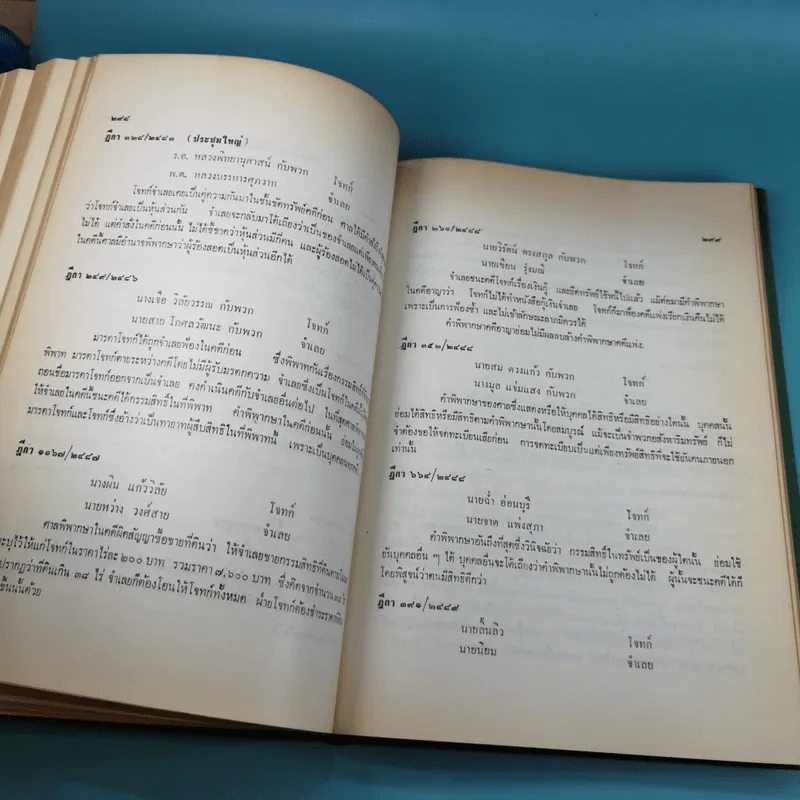 ๒๙๘
ฎีกา ๓๒๔/๒๔๘๓ (ประชุมใหญ่)
ร.อ. หลวงพิทยานุศาสน์ กับพวก โจทก์
พ.ต. หลวงบรรหารศุภวาท จำเลย
โจทก์จำเลยเคยเป็นคู่ความกันมาในชั้นขัดทรัพย์คดีก่อน ศาลได้มีคำ
ว่าโจทก์จำเลยเป็นหุ้นส่วนกัน จำเลยจะกลับมาโต้เถียงว่าเป็นของจำเลยแต่เพียง
ไม่ได้ แต่คำสั่งในคดีก่อนนั้น ไม่ได้ชี้ขาดว่าหุ้นส่วนมีกี่คน และผู้ร้องสอดไม่ได้เป็น
ในคดีนี้ศาลมีอำนาจพิพากษาว่าผู้ร้องสอดเป็นหุ้นส่วนอีกได้
ฎีกา ๒๔๙/๒๔๘๖
นางเจือ วิลัยวรรณ กับพวก โจทก์
นายสาย โกศลวัฒนะ กับพวก จำเลย
มารดาโจทก์ได้ถูกจำเลยฟ้องในคดีก่อน ซึ่งพิพาทกันเรื่องกรรมสิทธิ์ที่
พิพาท มารดาโจทก์ตายระหว่างคดีโดยไม่มีผู้รับมรดกความ จำเลยซึ่งเป็นโจทก์ในคดี
ถอนชื่อมารดาโจทก์ออกจากเป็นจำเลย คงดำเนินคดีกับจำเลยอื่นต่อไป ในที่สุดศาลพิพากษา
ให้จำเลยในคดีนี้ชนะคดีได้กรรมสิทธิ์ในที่พิพาท คำพิพากษาในคดีก่อนนั้น ย่อมไม่ผูกพัน
มารดาโจทก์และโจทก์ซึ่งอ้างว่าเป็นทายาทผู้สืบสิทธิในที่พิพาทนี้ เพราะเป็นบุคคลนอกคดี
ฎีกา ๑๑๖๗/๒๔๘๗
นางผิน แก้ววิลัย โจทก์
นายหว่าง วงศ์สาย จำเลย
ศาลพิพากษาในคดีผิดสัญญาซื้อขายที่ดินว่า ให้จำเลยขายกรรมสิทธิ์ที่ดินตาม
ระบุไว้ให้แก่โจทก์ในราคาไร่ละ ๒๐๐ บาท รวมราคา ๗,๖๐๐ บาท ซึ่งคิดจากจำนวน ๓๘
ปรากฏว่าที่ดินเกิน ๓๘ ไร่ จำเลยก็ต้องโอนให้โจทก์ทั้งหมด ฝ่ายโจทก์ต้องชำระราคาที่ดิน
ขึ้นนั้นด้วย
๒๙๙
ฎีกา ๒๖๑/๒๔๘๘
นายวิรัตน์ ตรงสกุล กับพวก โจทก์
นายเขียน รุ่งมณี จำเลย
จำเลยชนะคดีโจทก์เรื่องเงินกู้ และยึดทรัพย์ใช้หนี้ไปแล้ว แม้ต่อมามีคำพิพากษา
ในคดีอาญาว่า โจทก์ไม่ได้ทำหนังสือกู้เงินจำเลย โจทก์ก็มาฟ้องคดีแพ่งเรียกเงินคืนไม่ได้
เพราะเป็นการฟ้องซ้ำ และไม่เข้าลักษณะลาภมิควรได้
คำพิพากษาคดีอาญาย่อมไม่มีผลลบล้างคำพิพากษาคดีแพ่ง.
ฎีกา ๓๕๒/๒๔๘๘
นายสม ดวงแก้ว กับพวก โจทก์
นางมูล แจ่มแสง กับพวก จำเลย
คำพิพากษาของศาลซึ่งแสดงหรือให้บุคคลได้สิทธิหรือมีสิทธิอย่างใดนั้น บุคคลนั้น
ย่อมได้สิทธิหรือมีสิทธิตามคำพิพากษานั้นโดยสมบูรณ์ แม้จะเป็นจำพวกอสังหาริมทรัพย์ ก็ไม่
จำต้องขอให้จดทะเบียนเสียก่อน การจดทะเบียนเป็นแต่เพียงทรัพย์สิทธิที่จะใช้ยันคนภายนอก
เท่านั้น
ฎีกา ๖๖๔/๒๔๘๘
นายฉ่ำ อ่อนบุรี โจทก์
นายจาด แพ่งสุภา จำเลย
คำพิพากษาอันถึงที่สุดซึ่งวินิจฉัยว่า กรรมสิทธิ์ในทรัพย์เป็นของผู้ใดนั้น ย่อมใช้
ยันบุคคลอื่น ๆ ได้ บุคคลอื่นจะโต้เถียงว่าคำพิพากษานั้นไม่ถูกต้องไม่ได้ ผู้นั้นจะชนะคดีได้ก็
โดยพิสูจน์ว่าตนมีสิทธิดีกว่า
ฎีกา ๓๙๑/๒๔๘๙
นายลิ้นลิว โจทก์
นายนิยม จำเลย